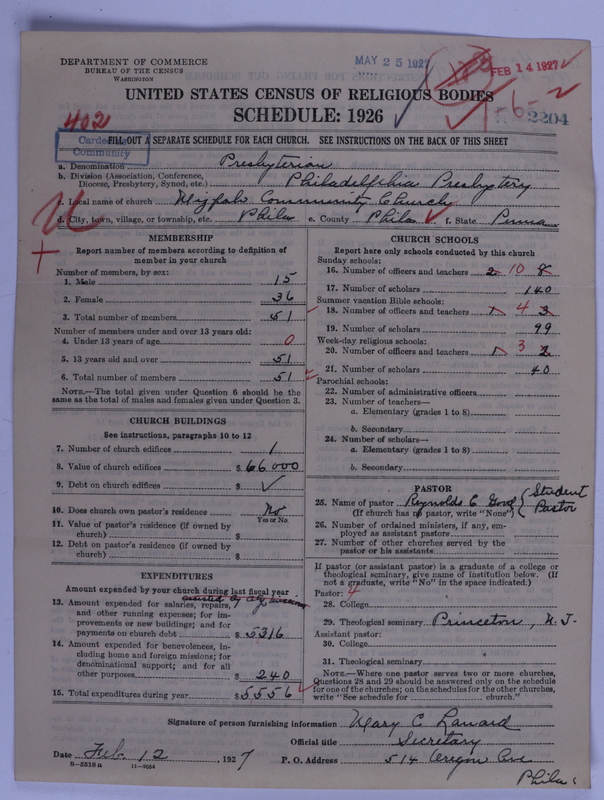 DEPARTMENT OF COMMERCE
BUREAU OF THE CENSUS
WASHINGTON
MAY 25 1927
FEB 14 1927
UNITED STATES CENSUS OF RELIGIOUS BODIES
SCHEDULE: 1926
2204
402
Carded
Community
FILL OUT A SEPARATE SCHEDULE FOR EACH CHURCH. SEE INSTRUCTIONS ON THE BACK OF THIS SHEET
a. Denomination Presbyterian
b. Division (Association, Conference, Diocese, Presbytery, Synod, etc.) Philadelphia Presbytery
c. Local name of church Mizpah Community Church
d. City, town, village, or township, etc. Phila e. County Phila f. State Penna
MEMBERSHIP
Report number of members according to definition of
member in your church
Number of members, by sex:
1. Male 15
2. Female 36
3. Total number of members 51
Number of members under and over 13 years old:
4. Under 13 years of age 0
5. 13 years old and over 51
6. Total number of members 51
NOTE.—The total given under Question 6 should be the
same as the total of males and females given under Question 3.
CHURCH BUILDINGS
See instructions, paragraphs 10 to 12
7. Number of church edifices 1
8. Value of church edifices $66000
9. Debt on church edifices $ ✓
10. Does church own pastor's residence No
Yes or No
11. Value of pastor's residence (if owned by
church) $
12. Debt on pastor's residence (if owned by
church) $
EXPENDITURES
Amount expended by your church during last fiscal year
13. Amount expended for salaries, repairs,
and other running expenses; for im-
provements or new buildings; and for
payments on church debt $5316
14. Amount expended for benevolences, in-
cluding home and foreign missions; for
denominational support; and for all
other purposes $240
15. Total expenditures during year $5556
CHURCH SCHOOLS
Report here only schools conducted by this church
Sunday schools:
16. Number of officers and teachers 2 10 8
17. Number of scholars 140
Summer vacation Bible schools:
18. Number of officers and teachers 1 4 3
19. Number of scholars 99
Week-day religious schools:
20. Number of officers and teachers 1 3 2
21. Number of scholars 40
Parochial schools:
22. Number of administrative officers
23. Number of teachers—
a. Elementary (grades 1 to 8)
b. Secondary
24. Number of scholars—
a. Elementary (grades 1 to 8)
b. Secondary
PASTOR
25. Name of pastor Reynolds C { Student Pastor
(If church has no pastor, write "None")
26. Number of ordained ministers, if any, em-
ployed as assistant pastors
27. Number of other churches served by the
pastor or his assistants
If pastor (or assistant pastor) is a graduate of a college or
theological seminary, give name of institution below. (If
not a graduate, write "No" in the space indicated.)
Pastor: 4
28. College
29. Theological seminary Princeton N. J.
Assistant pastor:
30. College
31. Theological seminary
NOTE.—Where one pastor serves two or more churches,
Questions 28 and 29 should be answered only on the schedule
for one of the churches; on the schedules for the other churches,
write "See schedule for church."
Signature of person furnishing information Mary C
Official title Secretary
Date Feb. 12, 1927 P. O. Address 514 Oregon Ave
Phila
8-5518a 11-9054